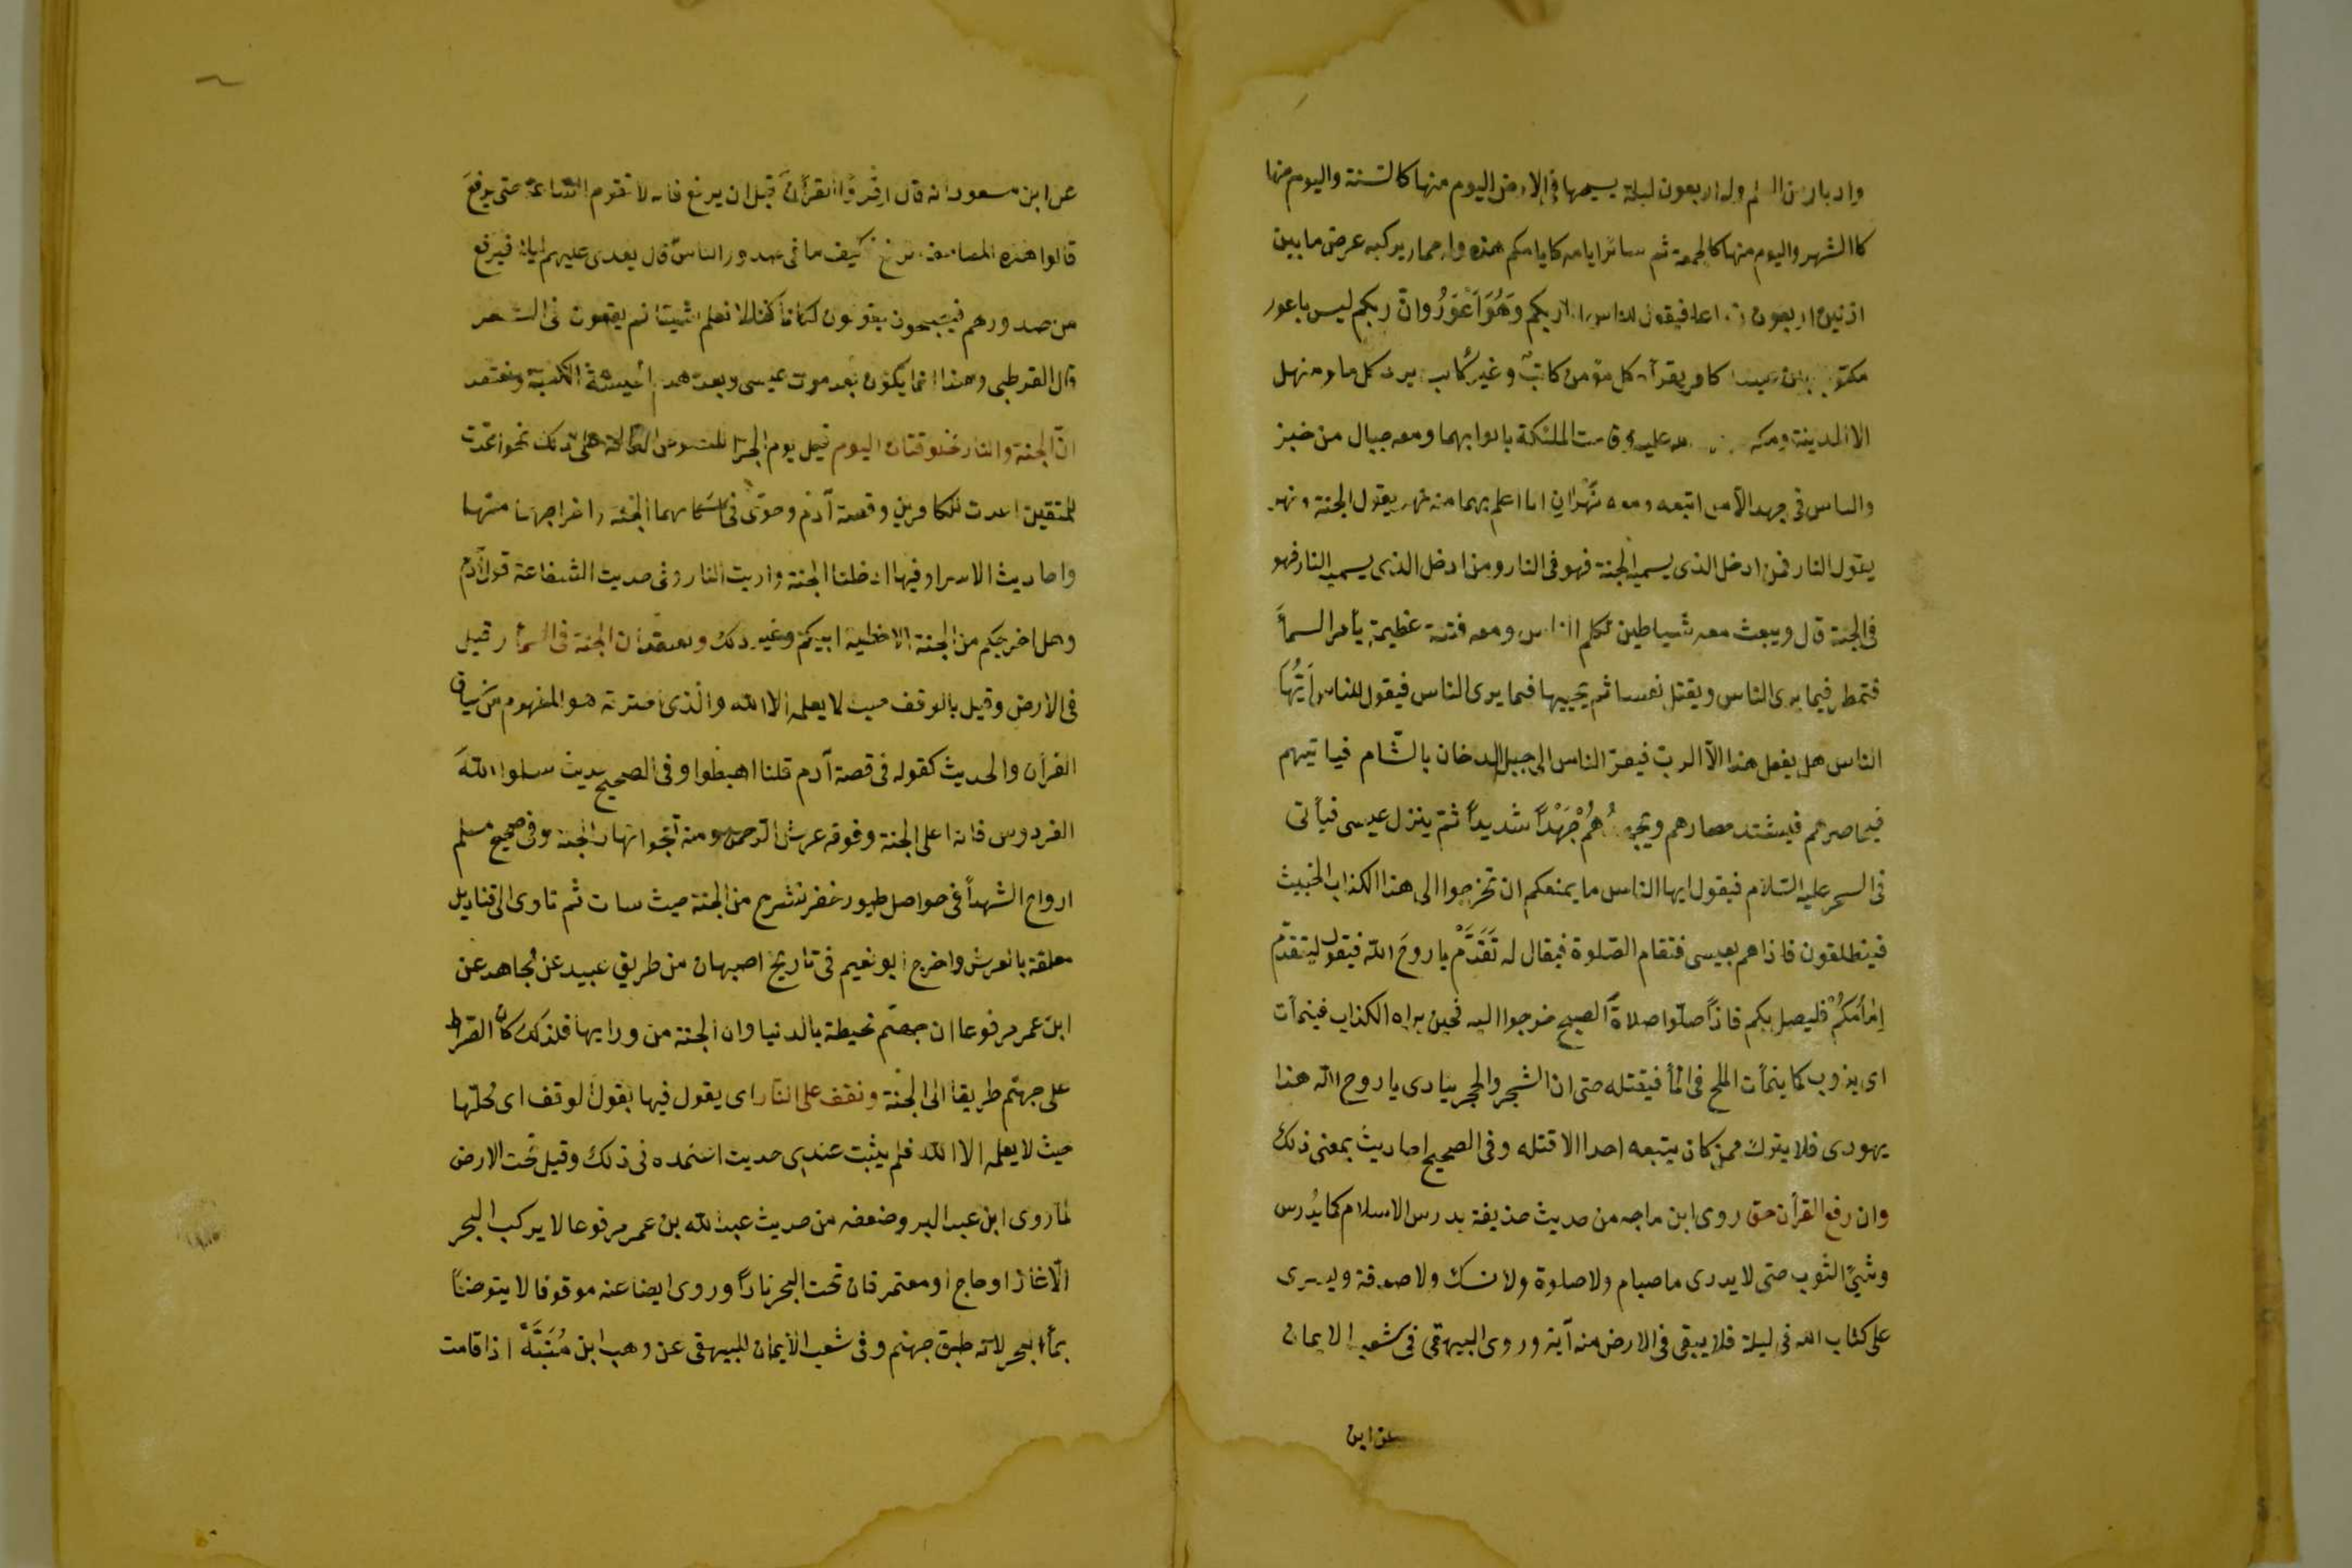 وادبار من العلم وله اربعون ليلة يسيحها فى الارض اليوم منها كالسنة واليوم منها
كاالشهر واليوم منها كالجمعة ثم سائر ايامه كايامكم هذه وله حمار يركبه عرض ما بين
اذنيه اربعون ذراعا فيقول للناس انا ربكم وَهُوَ اَعْوَرُ وانّ ربكم ليس باعور
مكتوب بين عينيه كافر يقرأه كل مؤمن كاتبٌ وغير كاتب يرد كل ماء ومنهل
الا المدينة ومكة الله عليه وقامت الملئكة بابوابهما ومعه جبال من خبز
والناس فى جهد الا من اتبعه ومعه نَهْران انا اعلم بهما منه نهر يقول الجنة ونهر
يقول النار فمن ادخل الذى يسميه الجنة فهو فى النار ومن ادخل الذى يسميه النار فهو
فى الجنة قال ويبعث معه شياطين تكلم الناس ومعه فتنة عظيمة يأمر السمأ
فتمطر فيما يرى الناس ويقتل نفسا ثم يحييها فيما يرى الناس فيقول للناس اَيُّهَا
الناس هل يفعل هذا الاّ الرب فيفرّ الناس الى جبل الدخان بالشّام فياتيهم
فيحاصرهم فيشتد حصارهم ويجهدُهُمْ جَهْدًا شديدًا ثم ينزل عيسى فيأتى
فى السحر عليه السّلام فيقول ايها الناس ما يمنعكم ان تخرجوا الى هذا الكذاب الخبيث
فينطلقون فاذا هم بعيسى فتقام الصّلوة فيقال له تَقَدَّمْ يا روحَ الله فيقول ليتقدّم
اِمَامُكُمْ فليصل بكم فاذا صلّوا صلاةَ الصبح خرجوا اليه فحين يراه الكذاب فينمأت
اى يذوب كما ينمأت الملح فى المأ فيقتله حتى ان الشجر والحجر ينادى يا روح الله هذا
يهودى فلا يترك ممن كان يتبعه احدا الا قتله وفى الصحيح احاديث بمعنى ذلك
وان رفع القرأن حق روى ابن ماجه من حديث حذيفة يدرس الاسلام كما يُدرس
وشىُ الثوب حتى لا يدرى ما صيام ولا صلوة ولا نسك ولا صدقة ويسرى
على كتاب الله فى ليلة فلا يبقى فى الارض منه آية وروى البيهقى فى شعب الايمان
عن ابن
عن ابن مسعود انه قال اقرؤا القرأن قبل ان يرفع فانه لا تقوم الساعة حتى يرفعَ
قالوا هذه المصاحف ترفع فكيف ما فى صدور الناس قال يعدى عليهم ليلا فيرفع
من صدورهم فيصبحون يقولون لكأنا كنا لا نعلم شيئا ثم يقعون فى الشعر
قال القرطبى وهذا انما يكون بعد موت عيسى وبعد هدم الحبشة الكعبة ونعتقد
انّ الجنة والنار مخلوقتان اليوم قبل يوم الجزا للنصوص الدالة على ذلك نحو اعدت
للمتقين اعدت للكافرين وقصة آدم وحوّى فى اسكانهما الجنة واخراجهما منها
واحاديث الاسرا وفيها ادخلنا الجنة واريت النار وفى حديث الشفاعة قول آدم
وهل اخرجكم من الجنة الا خطية ابيكم وغير ذلك ونعتقد ان الجنة فى السمأ وقيل
فى الارض وقيل بالوقف حيث لا يعلمه الا الله والذى اخترته هو المفهوم من سياق
القرأن والحديث كقوله فى قصة آدم قلنا اهبطوا وفى الصحيح حديث سلوا اللهَ
الفردوس فانه اعلى الجنة وفوقه عرش الرحمن ومنه تفجر انهار الجنة وفى صحيح مسلم
ارواح الشهدأ فى حواصل طيور خضر تسرح من الجنة حيث شات ثم تاوى الى قناديل
معلقة بالعرش واخرج ابو نعيم فى تاريخ اصبهان من طريق عبيد عن مجاهد عن
ابن عمر مرفوعا ان جهنّم محيطة بالدنيا وان الجنة من ورايها فلذلك كان الصّراط
على جهنّم طريقا الى الجنّة ونقف على النار اى يقول فيها بقول الوقف اى محلّها
حيث لا يعلمه الا الله فلم يثبت عندى حديث اعتمده فى ذلك وقيل تحت الارض
لما روى ابن عبد البر وضعفه من حديث عبد الله بن عمر مرفوعا لا يركب البحر
الّا غاز او حاج او معتمر فان تحت البحر نارًا وروى ايضا عنه موقوفا لا يتوضأ
بمأ البحر لانه طبق جهنم وفى شعب الايمان للبيهقى عن وهب ابن مُنَبَّهْ اذا قامت